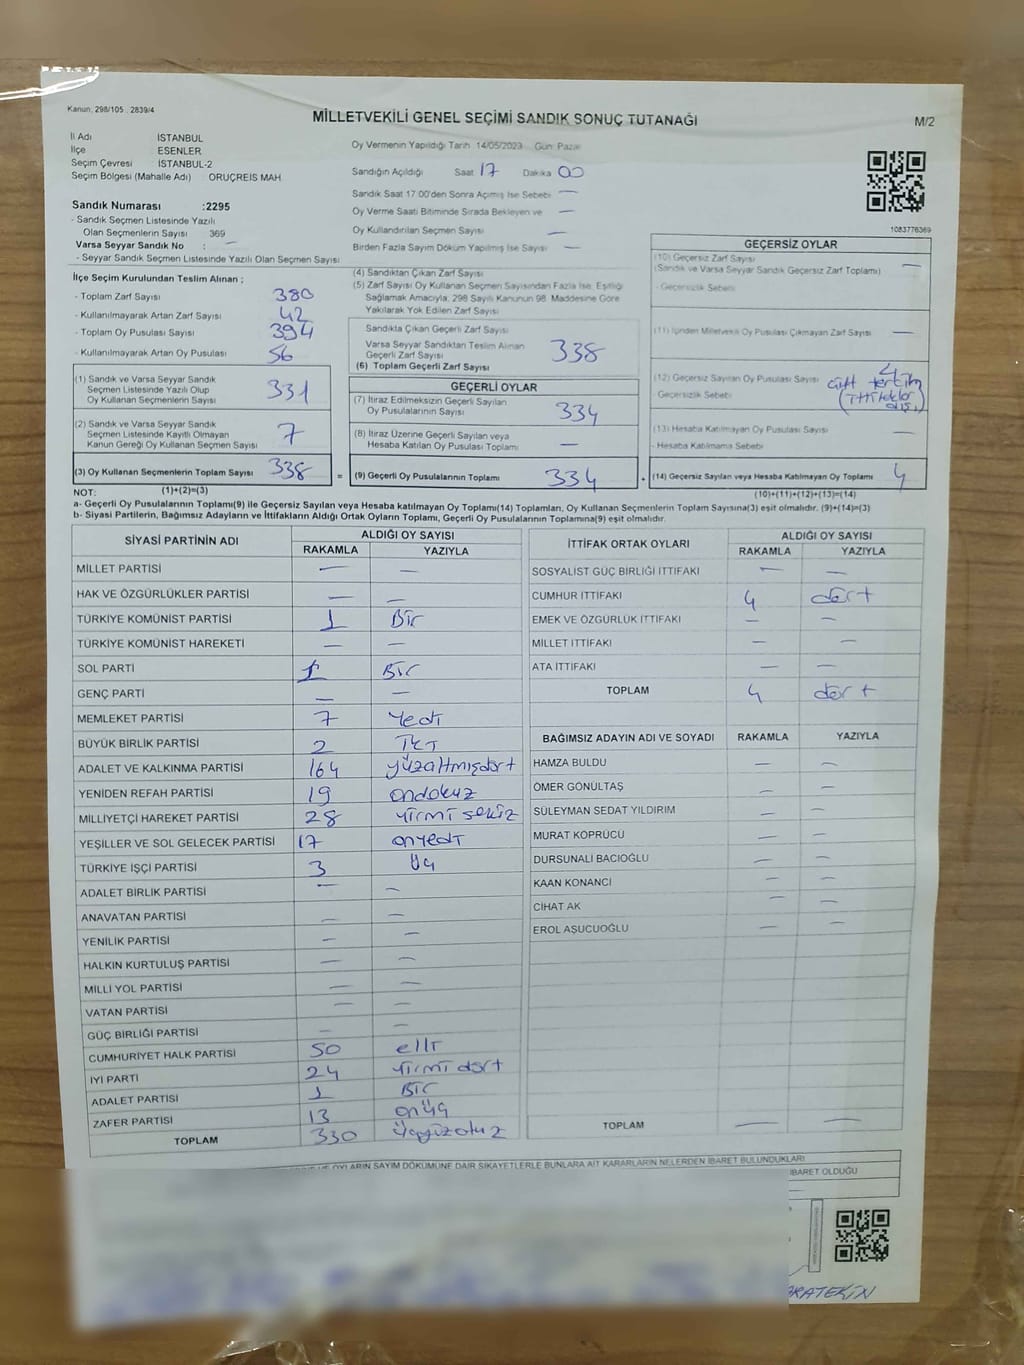 Kanun, 298/105 , 2839/4
MİLLETVEKİLİ GENEL SEÇİMİ SANDIK SONUÇ TUTANAĞI
M/2
İl Adı İSTANBUL
İlçe ESENLER
Seçim Çevresi İSTANBUL-2
Seçim Bölgesi (Mahalle Adı) ORUÇREİS MAH.
Sandık Numarası :2295
- Sandık Seçmen Listesinde Yazılı
Olan Seçmenlerin Sayısı 369
Varsa Seyyar Sandık No : —
- Seyyar Sandık Seçmen Listesinde Yazılı Olan Seçmen Sayısı
Oy Vermenin Yapıldığı Tarih 14/05/2023 Gün: Pazar
Sandığın Açıldığı Saat 17 Dakika 00
Sandık Saat 17:00'den Sonra Açımış İse Sebebi —
Oy Verme Saati Bitiminde Sırada Bekleyen ve —
Oy Kullandırılan Seçmen Sayısı —
Birden Fazla Sayım Döküm Yapılmış İse Sayısı —
1083776369
İlçe Seçim Kurulundan Teslim Alınan ;
- Toplam Zarf Sayısı 380
- Kullanılmayarak Artan Zarf Sayısı 42
- Toplam Oy Pusulası Sayısı 394
- Kullanılmayarak Artan Oy Pusulası 56
(1) Sandık ve Varsa Seyyar Sandık
Seçmen Listesinde Yazılı Olup
Oy Kullanan Seçmenlerin Sayısı 331
(2) Sandık ve Varsa Seyyar Sandık
Seçmen Listesinde Kayıtlı Olmayan
Kanun Gereği Oy Kullanan Seçmen Sayısı 7
(3) Oy Kullanan Seçmenlerin Toplam Sayısı 338 =
(1)+(2)=(3)
(4) Sandıktan Çıkan Zarf Sayısı
(5) Zarf Sayısı Oy Kullanan Seçmen Sayısından Fazla İse, Eşitliği
Sağlamak Amacıyla, 298 Sayılı Kanunun 98. Maddesine Göre
Yakılarak Yok Edilen Zarf Sayısı
Sandıkla Çıkan Geçerli Zarf Sayısı
Varsa Seyyar Sandıktan Teslim Alınan
Geçerli Zarf Sayısı 338
(6) Toplam Geçerli Zarf Sayısı
GEÇERLİ OYLAR
(7) İtiraz Edilmeksizin Geçerli Sayılan
Oy Pusulalarının Sayısı 334
(8) İtiraz Üzerine Geçerli Sayılan veya
Hesaba Katılan Oy Pusulası Toplamı —
(9) Geçerli Oy Pusulalarının Toplamı 334 +
GEÇERSİZ OYLAR
(10) Geçersiz Zarf Sayısı —
(Sandık ve Varsa Seyyar Sandık Geçersiz Zarf Toplamı)
- Geçersizlik Sebebi
(11) İçinden Milletvekili Oy Pusulası Çıkmayan Zarf Sayısı —
(12) Geçersiz Sayılan Oy Pusulası Sayısı 4
- Geçersizlik Sebebi çift tercih
(ittifaklar
dışı)
(13) Hesaba Katılmayan Oy Pusulası Sayısı —
- Hesaba Katılmama Sebebi
(14) Geçersiz Sayılan veya Hesaba Katılmayan Oy Toplamı 4
(10)+(11)+(12)+(13)=(14)
NOT:
a- Geçerli Oy Pusulaların Toplamı(9) ile Geçersiz Sayılan veya Hesaba katılmayan Oy Toplamı(14) Toplamları, Oy Kullanan Seçmenlerin Toplam Sayısına(3) eşit olmalıdır. (9)+(14)=(3)
b- Siyasi Partilerin, Bağımsız Adayların ve İttifakların Aldığı Ortak Oyların Toplamı, Geçerli Oy Pusulalarının Toplamına(9) eşit olmalıdır.
SİYASİ PARTİNİN ADI ALDIĞI OY SAYISI
RAKAMLA YAZIYLA
MİLLET PARTİSİ — —
HAK VE ÖZGÜRLÜKLER PARTİSİ — —
TÜRKİYE KOMÜNİST PARTİSİ 1 Bir
TÜRKİYE KOMÜNİST HAREKETİ — —
SOL PARTİ 1 Bir
GENÇ PARTİ — —
MEMLEKET PARTİSİ 7 Yedi
BÜYÜK BİRLİK PARTİSİ 2 İki
ADALET VE KALKINMA PARTİSİ 164 yüzaltmışdört
YENİDEN REFAH PARTİSİ 19 ondokuz
MİLLİYETÇİ HAREKET PARTİSİ 28 Yirmi sekiz
YEŞİLLER VE SOL GELECEK PARTİSİ 17 onyedi
TÜRKİYE İŞÇİ PARTİSİ 3 Üç
ADALET BİRLİK PARTİSİ — —
ANAVATAN PARTİSİ — —
YENİLİK PARTİSİ — —
HALKIN KURTULUŞ PARTİSİ — —
MİLLİ YOL PARTİSİ — —
VATAN PARTİSİ — —
GÜÇ BİRLİĞİ PARTİSİ — —
CUMHURİYET HALK PARTİSİ 50 elli
İYİ PARTİ 24 Yirmi dört
ADALET PARTİSİ 1 Bir
ZAFER PARTİSİ 13 onüç
TOPLAM 330 Üçyüzotuz
İTTİFAK ORTAK OYLARI ALDIĞI OY SAYISI
RAKAMLA YAZIYLA
SOSYALİST GÜÇ BİRLİĞİ İTTİFAKI — —
CUMHUR İTTİFAKI 4 dört
EMEK VE ÖZGÜRLÜK İTTİFAKI — —
MİLLET İTTİFAKI — —
ATA İTTİFAKI — —
TOPLAM 4 dört
BAĞIMSIZ ADAYIN ADI VE SOYADI RAKAMLA YAZIYLA
HAMZA BULDU — —
ÖMER GÖNÜLTAŞ — —
SÜLEYMAN SEDAT YILDIRIM — —
MURAT KÖPRÜCÜ — —
DURSUNALİ BACIOĞLU — —
KAAN KONANCI — —
CİHAT AK — —
EROL AŞUCUOĞLU — —
TOPLAM — —
OYLARIN SAYIM DÖKÜMÜNE DAİR ŞİKAYETLERLE BUNLARA AİT KARARLARIN NELERDEN İBARET BULUNDUKLARI
İBARET OLDUĞU